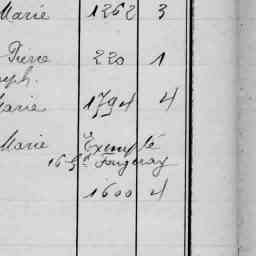 Marie 1262 3
Pierre 220 1
Joseph
Marie 1794 4
Marie Exempté
16 Gd Fougeray
1600 4